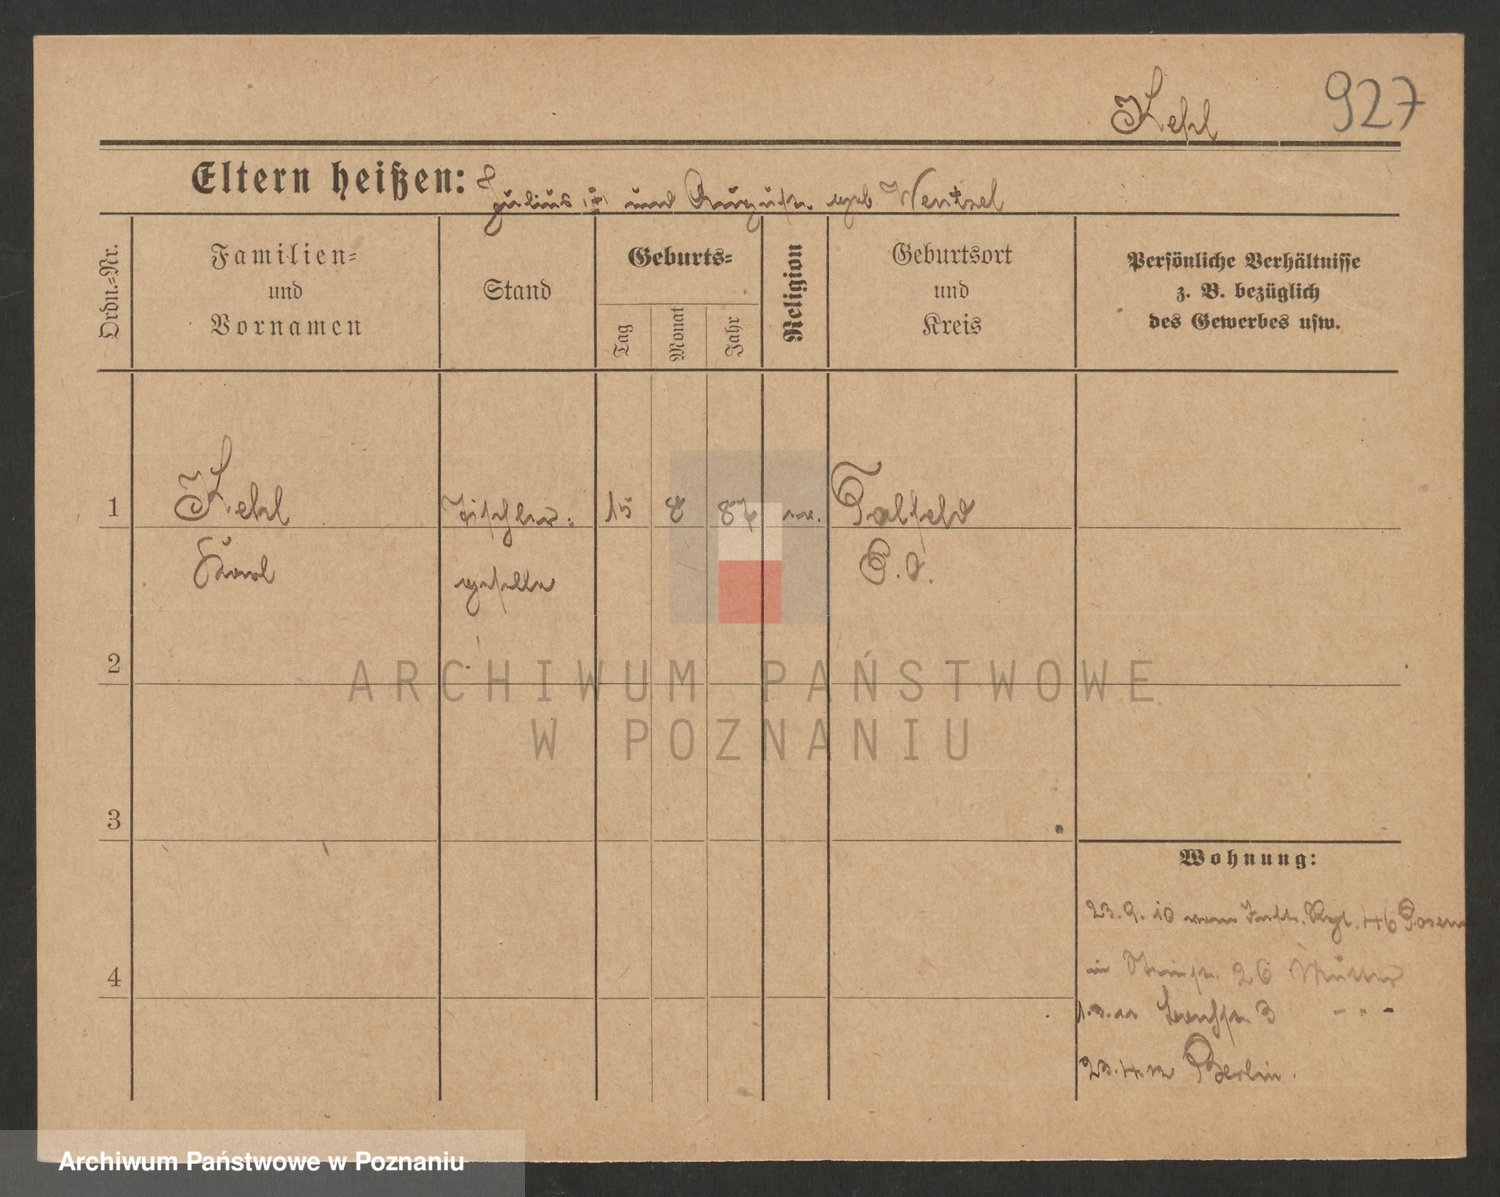 Kehl 927
Eltern heißen: Julius und Auguste geb Wentzel
Ordn.=Nr.
Familien=
und
Vornamen
Stand
Geburts=
Tag
Monat
Jahr
Religion
Geburtsort
und
Kreis
Persönliche Verhältnisse
z. B. bezüglich
des Gewerbes usw.
1 Kehl Tischler= 15 8 87 ev.
Karl geselle
2
3
4
Wohnung:
23.9.10 vom Inftr. Rgt. 46 Posen
in 26 Mutter
1.3.11 3 - " -
23.4.12 Berlin.
ARCHIWUM PAŃSTWOWE
W POZNANIU
Archiwum Państwowe w Poznaniu